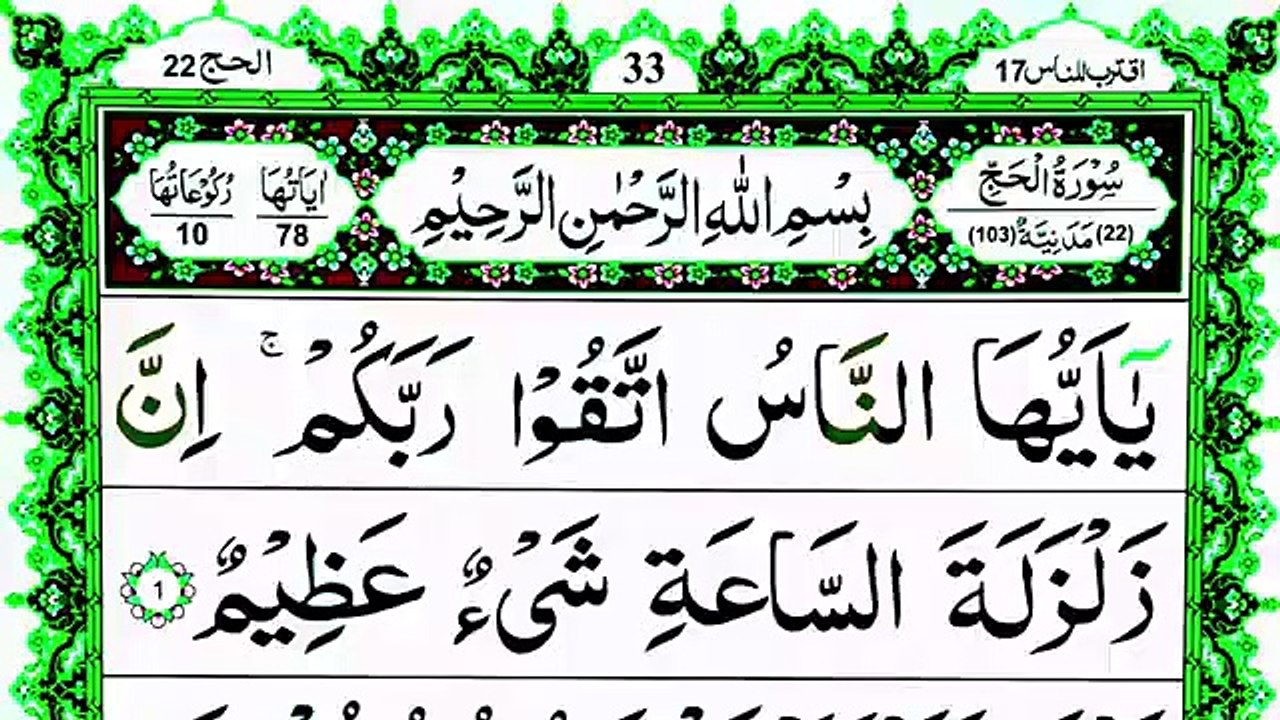 اقترب للناس 17
33
الحج 22
سُوْرَةُ الْحَجِّ
(22) مَدَنِيَّةٌ (103)
بِسْمِ اللّٰهِ الرَّحْمٰنِ الرَّحِيْمِ
اٰيَاتُهَا 78
رُكُوْعَاتُهَا 10
يٰۤاَيُّهَا النَّاسُ اتَّقُوْا رَبَّكُمْ ۚ اِنَّ
زَلْزَلَةَ السَّاعَةِ شَیْءٌ عَظِيْمٌ 1